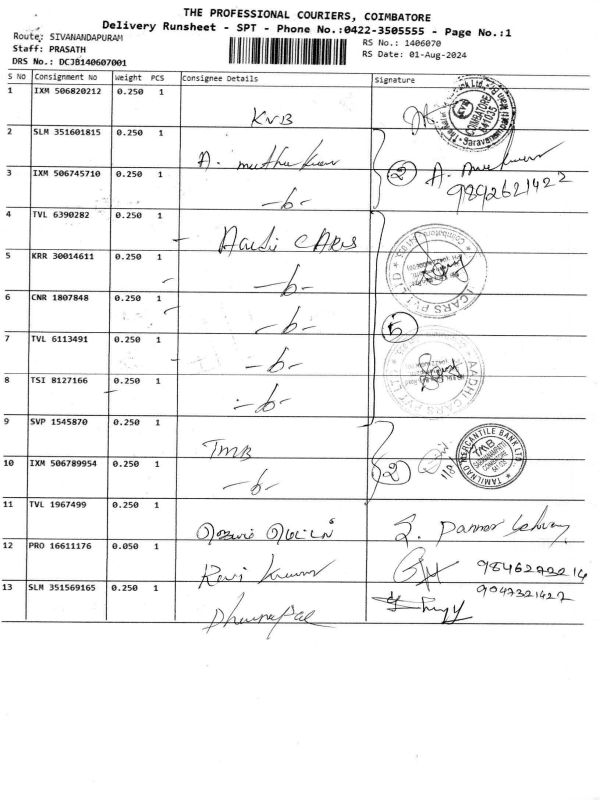 THE PROFESSIONAL COURIERS, COIMBATORE
Delivery Runsheet - SPT - Phone No.:0422-3505555 - Page No.:1
Route: SIVANANDAPURAM
Staff: PRASATH
DRS No.: DCJB140607001
RS No.: 1406070
RS Date: 01-Aug-2024
S NO Consignment No Weight PCS Consignee Details Signature
1 IXM 506820212 0.250 1
KVB
COIMBATORE
641035
2 SLM 351601815 0.250 1
A. muthu kumar
2
3 IXM 506745710 0.250 1
9892621422
-6-
4 TVL 6390282 0.250 1
CARS
5 KRR 30014611 0.250 1
-6-
6 CNR 1807848 0.250 1
-6-
5
7 TVL 6113491 0.250 1
-6-
AADHI CARS PVT LTD
8 TSI 8127166 0.250 1
-6-
9 SVP 1545870 0.250 1
TMB
2
TAMILNAD MERCANTILE BANK LTD
TMB
10 IXM 506789954 0.250 1
-6-
11 TVL 1967499 0.250 1
12 PRO 16611176 0.050 1
Ravi Kumar
9846272214
13 SLM 351569165 0.250 1
9047321427
Dhanapal